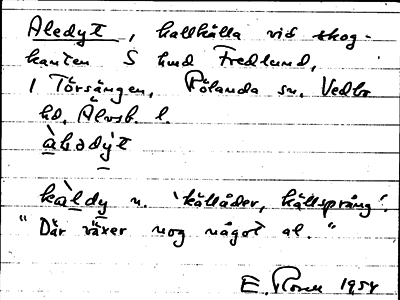 Aledyt, kallkälla vid skog-
kanten S hmd Fredlund,
i Törsängen, Rölanda sn, Vedbo
hd, Älvsb. l.
kàldy n. 'källåder, källsprång'.
"Där växer nog något al."
E. 1954